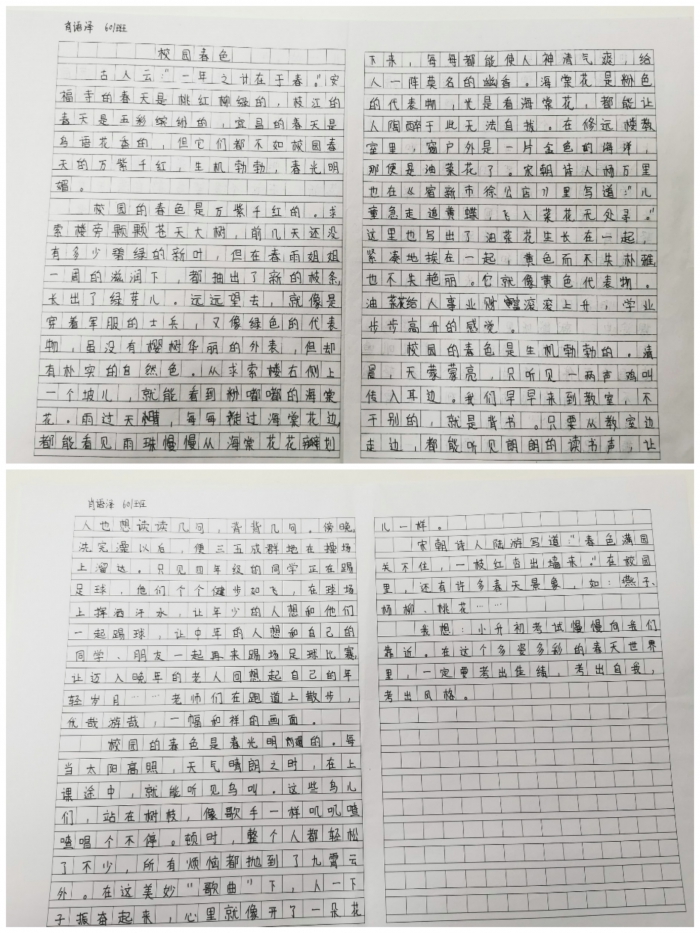 肖语泽 601班
校园春色
古人云“一年之计在于春。”安
福寺的春天是桃红柳绿的，枝江的
春天是五彩缤纷的，宜昌的春天是
鸟语花香的，但它们都不如校园春
天的万紫千红，生机勃勃，春光明
媚。
校园的春色是万紫千红的。求
索楼旁颗颗苍天大树，前几天还没
有多少碧绿的新叶，但在春雨姐姐
一周的滋润下，都抽出了新的枝条，
长出了绿芽儿。远远望去，就像是
穿着军服的士兵，又像绿色的代表
物，虽没有樱树华丽的外表，但却
有朴实的自然色。从求索楼右侧上
一个坡儿，就能看到粉嘟嘟的海棠
花。雨过天晴，每每路过海棠花边，
都能看见雨珠慢慢从海棠花花瓣划
下来，每每都能使人神清气爽，给
人一阵莫名的幽香。海棠花是粉色
的代表物，光是看海棠花，都能让
人陶醉于此无法自拔。在修远楼教
室里，窗户外是一片金色的海洋，
那便是油菜花了。宋朝诗人杨万里
也在《宿新市徐公店》里写道：“儿
童急走追黄蝶，飞入菜花无处寻。”
这里也写出了油菜花生长在一起，
紧凑地挨在一起，黄色而不失朴雅，
也不失艳丽。它就像黄色代表物。
油菜花给人事业财富滚滚上升，学业
步步高升的感觉。
校园的春色是生机勃勃的。清
晨，天蒙蒙亮，只听见一两声鸡叫
传入耳边。我们早早来到教室，不
干别的，就是背书。只要从教室边
走边，都能听见朗朗的读书声，让
肖语泽 601班
人也想读读几句，背背几句。傍晚，
洗完澡以后，便三五成群地在操场
上溜达。只见四年级的同学正在踢
足球，他们个个健步如飞，在球场
上挥洒汗水，让年少的人想和他们
一起踢球，让中年的人想和自己的
同学、朋友一起再来踢场足球比赛，
让迈入晚年的老人回想起自己的年
轻岁月……老师们在跑道上散步，
优哉游哉，一幅和祥的画面。
校园的春色是春光明媚的。每
当太阳高照，天气晴朗之时，在上
课途中，就能听见鸟叫。这些鸟儿
们，站在树枝，像歌手一样叽叽喳
喳唱个不停。顿时，整个人都轻松
了不少，所有烦恼都抛到了九霄云
外。在这美妙“歌曲”下，人一下
子振奋起来，心里就像开了一朵花
儿一样。
宋朝诗人陆游写道：“春色满园
关不住，一枝红杏出墙来。”在校园
里，还有许多春天景象，如：燕子、
杨柳、桃花……
我想：小升初考试慢慢向我们
靠近。在这个多姿多彩的春天世界
里，一定要考出佳绩，考出自我，
考出风格。